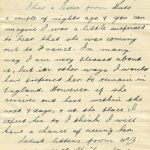 I had a letter from Dad
a couple of nights ago & you can
imagine I was a little surprised
to hear that she was coming
out to France. In many
way I am very pleased about
it, but in other ways I would
have preferred her to remain in
England. However if she
comes out here within the
next days, & at the place I
refer to so I think I will
have a chance of seeing her.
Latest letters from